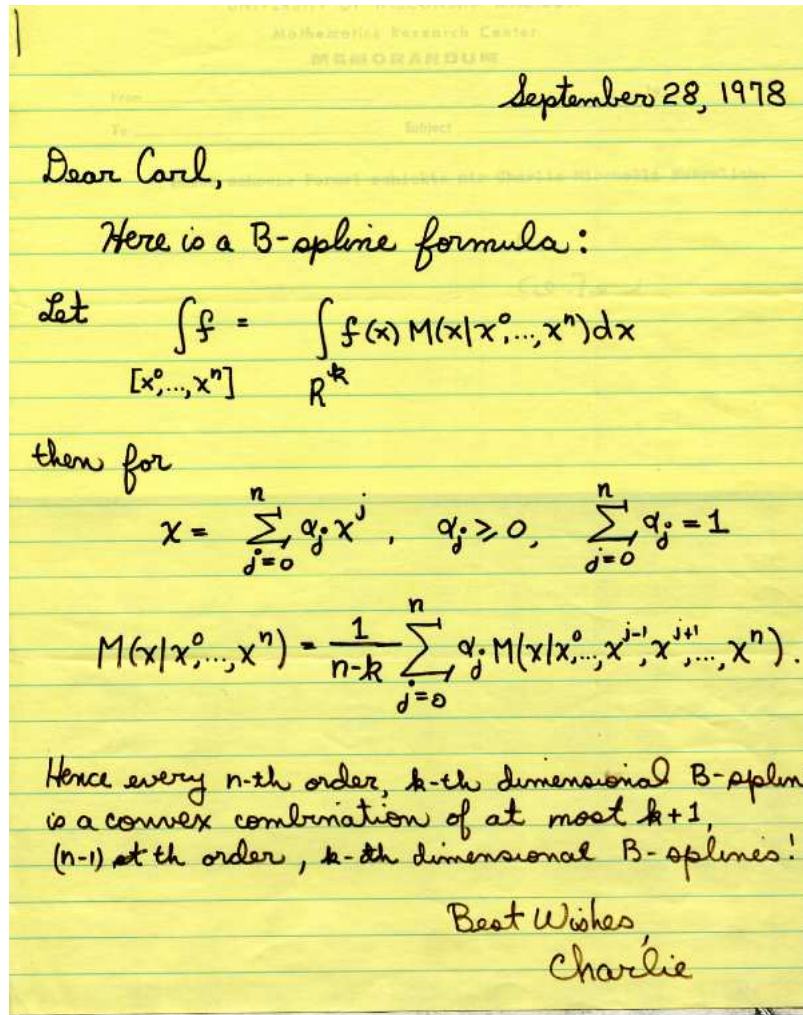 Mathematics Research Center
MEMORANDUM
From
To
Subject
September 28, 1978
Dear Carl,
Here is a B-spline formula:
Let ∫_{[x⁰,...,xⁿ]} f = ∫_{R^k} f(x) M(x|x⁰,...,xⁿ) dx
then for
x = ∑_{j=0}^{n} α_j x^j, α_j ≥ 0, ∑_{j=0}^{n} α_j = 1
M(x|x⁰,...,xⁿ) = 1/(n-k) ∑_{j=0}^{n} α_j M(x|x⁰,...,x^{j-1}, x^{j+1},...,xⁿ).
Hence every n-th order, k-th dimensional B-splin
is a convex combination of at most k+1,
(n-1) st th order, k-th dimensional B-splines!
Best Wishes,
Charlie